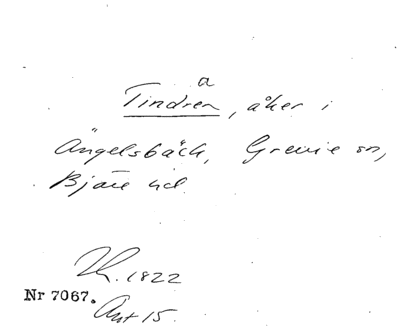 a
Tindren, åker i
Ängelsbäck, Grevie sn,
Bjäre hd.
1822
Nr 7067.
Akt 15.